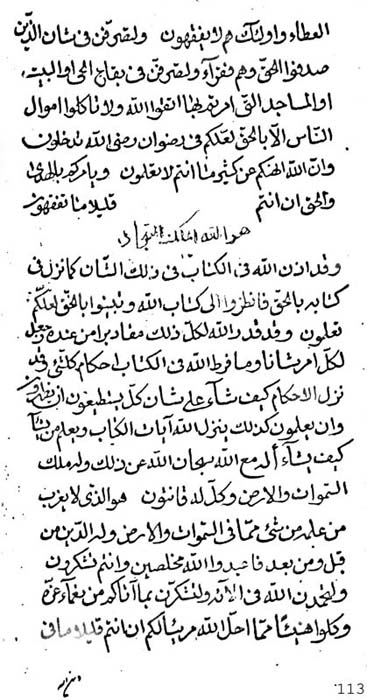 العطاء واولئك هم لا يفقهون ولتصرفن فى شان الذين
صدقوا الحق وهم فقرآء ولتصرفن فى بقاع الحى او البيت
او المساجد التى امر بها اتقوا الله ولا تاكلوا اموال
الناس الا بالحق لعلكم فى رضوان رضى الله تدخلون
وان الله الهكم عن كثير مما انتم لا تعلمون ويامركم بالهدى
والحق ان انتم قليلا ما تفقهون
هو الله
وقد اذن الله فى الكتاب فى ذلك الشان كما نزل فى
كتابه بالحق فانظروا الى كتاب الله وتبينوا بالحق لعلكم
تعلمون وقد قدر الله لكل ذلك مقادير امن عنده جعل
لكل امر شانا وما فرط الله فى الكتاب احكام كلشئ قد
نزل الاحكام كيف شآء على شان كل يستطيعون ان
وان يعلمون كذلك ينزل الله آيات الكتاب ويعلم من يشآء
كيف يشآء أله مع الله سبحان الله عن ذلك وله ملك
السموات والارض وكل له قانتون هو الذى لا يعزب
من علمه من شئ مما فى السموات والارض وله الدين من
قبل ومن بعد فاعبدوا الله مخلصين وانتم تشكرون
ولتحمدن الله فى الآئه ولتشكرن بما آتاكم من نعمآء عزه
وكلوا هنيئا مما احل الله ربكم ان انتم قليلا ما فى
113